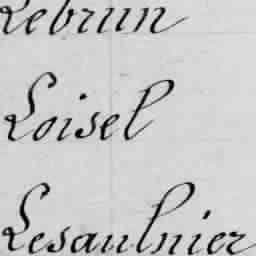 Lebrun
Loisel
Lesaulnier